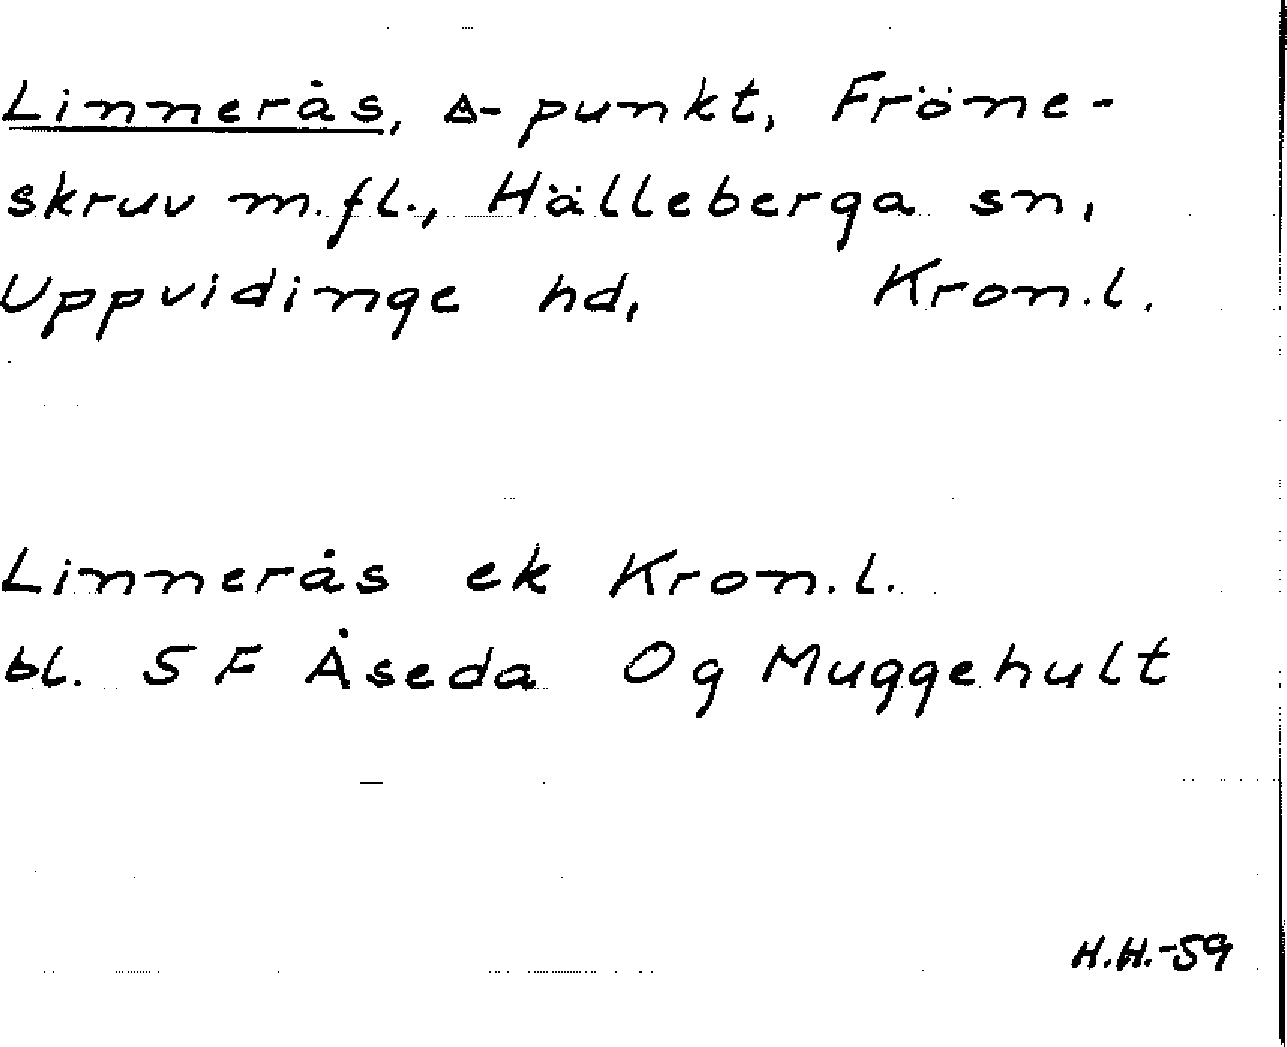 Linnerås, △-punkt, Fröne-
skruv m.fl., Hälleberga sn,
Uppvidinge hd, Kron.l.
Linnerås ek Kron.l.
bl. 5 F Åseda Og Muggehult
H.H.-59